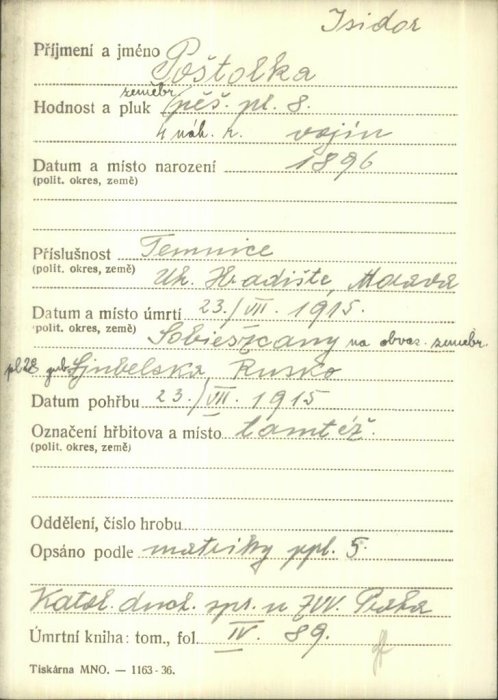 Isidor
Příjmení a jméno Poštolka
zeměbr.
Hodnost a pluk pěš. pl. 8.
4 náh. k. vojín
Datum a místo narození 1896
(polit. okres, země)
Příslušnost Temnice
(polit. okres, země) Uh. Hradiště, Morava
Datum a místo úmrtí 23./VII. 1915.
(polit. okres, země) Sobieszcany na obvas. zeměbr.
pl 28 gub. Ljubelska Rusko
Datum pohřbu 23./VII. 1915
Označení hřbitova a místo tamtéž.
(polit. okres, země)
Oddělení, číslo hrobu
Opsáno podle matriky ppl. 5.
Katol. duch. spr. u ZVV. Praha
Úmrtní kniha: tom., fol. IV. 89.
Tiskárna MNO. — 1163-36.